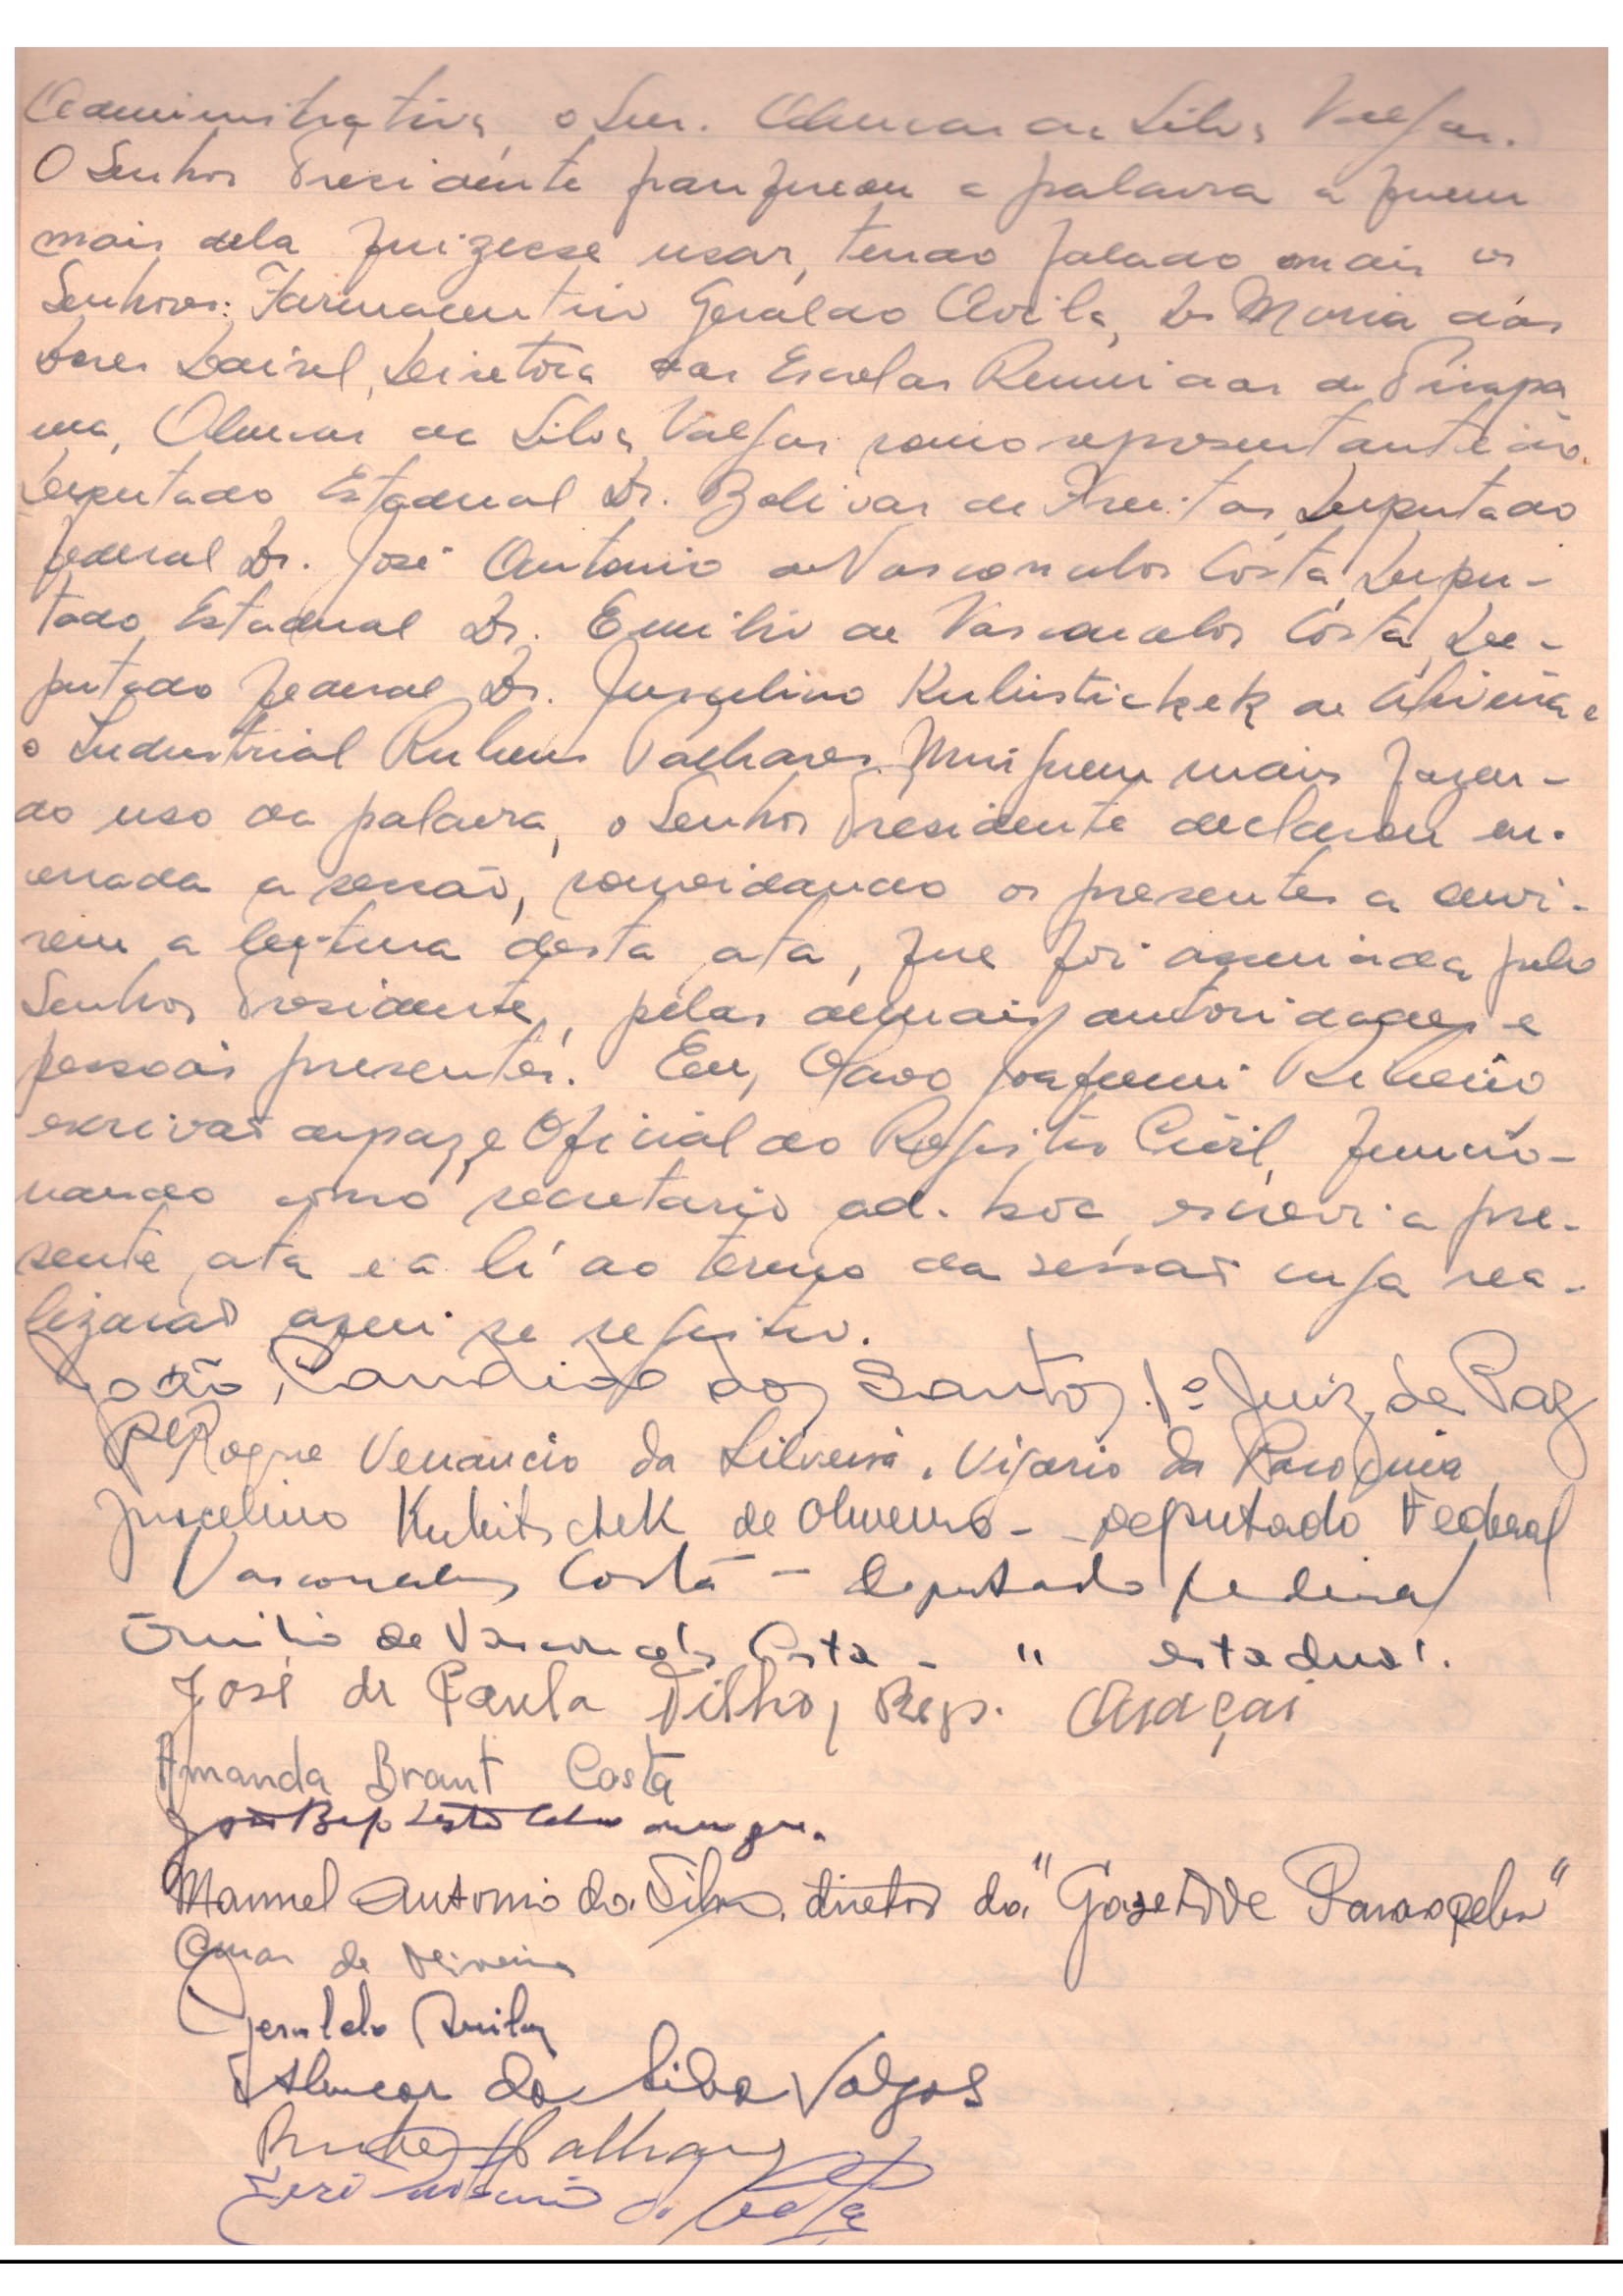 Administrativa, o Snr. Alencar da Silva Valgas.
O Senhor Presidente franqueou a palavra a quem
mais dela quizesse usar, tendo falado mais os
Senhores: Farmaceutico Geraldo Avila, D. Maria das
Dores Diretora das Escolas Reunidas de Pirapa
ma, Alencar da Silva Valgas como representante do
Deputado Estadual Dr. Bolivar de Freitas, Deputado
federal Dr. José Antonio de Vasconcelos Costa, Depu-
tado Estadual Dr. Emilio de Vasconcelos Costa, De-
putado federal Dr. Juscelino Kubistickek de Oliveira e
o Industrial Rubens Palhares. Ninguem mais fazen-
do uso da palavra, o Senhor Presidente declarou en-
cerrada a sessão, convidando os presentes a ouvi-
rem a leitura desta ata, que foi assinada pelo
Senhor Presidente, pelas demais autoridades e
pessoas presentes. Eu, Olavo Joaquim Ribeiro
escrivão de paz e Oficial do Registro Civil, funcio-
nando como secretario ad-hoc, escrevi a pre-
sente ata e a lí ao termo da sessão cuja rea-
lização aqui se registro.
João Candido dos Santos. 1º Juiz de Paz
Pe Roque Venancio da Silveira. Vigario da Paroquia
Juscelino Kubitschek de Oliveira - Deputado Federal
Vasconcelos Costa - deputado federal
Emilio de Vasconcelos Costa - " estadual.
José de Paula Filho, Rep. Araçai
Amanda Brant Costa
João Baptista
Manuel Antonio da Silva, diretor da "Gazeta de Paraopeba"
de Oliveira
Geraldo Avila
Alencar da Silva Valgas
Rubens Palhares